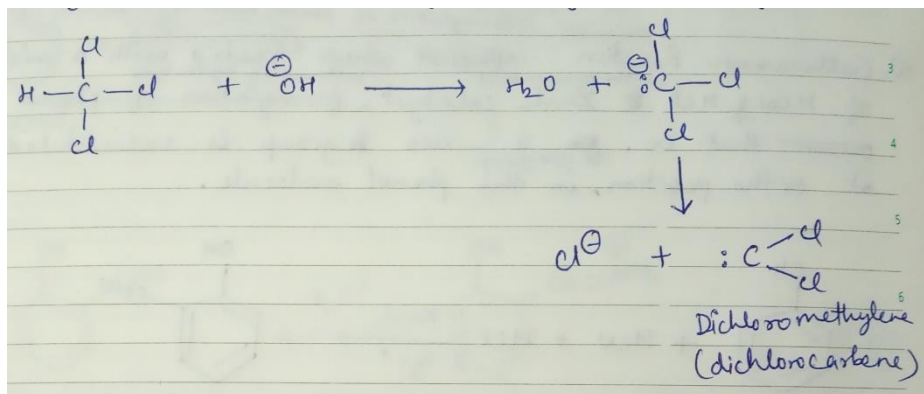 Cl
H — C — Cl + ⊖OH ⟶ H2O + ⊖:C — Cl
Cl
Cl
Cl
↓
Cl⊖ + :C
Cl
Cl
Dichloromethylene
(dichlorocarbene)
3
4
5
6